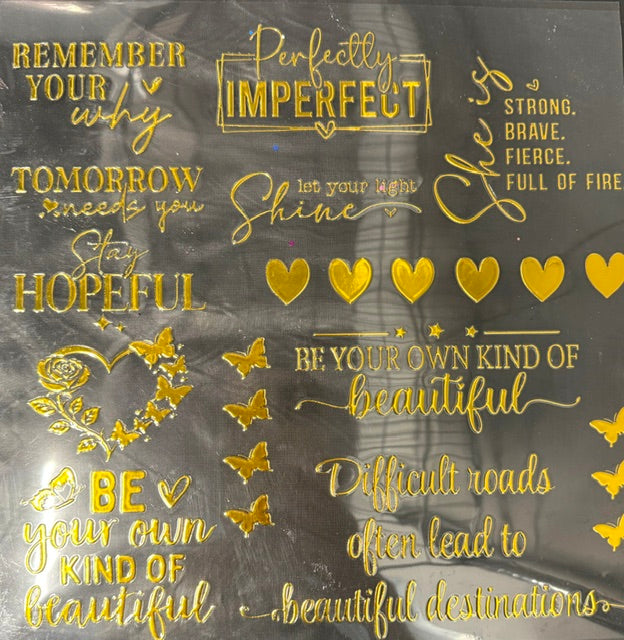 REMEMBER
YOUR
why
Perfectly
IMPERFECT
She is
STRONG.
BRAVE.
FIERCE.
FULL OF FIRE
TOMORROW
needs you
let your light
Shine
Stay
HOPEFUL
BE YOUR OWN KIND OF
beautiful
BE
your own
KIND OF
beautiful
Difficult roads
often lead to
beautiful destinations